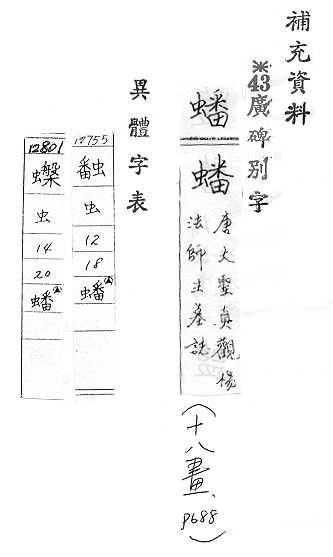 補充資料
※43廣碑別字
蟠
蟠
唐大聖真觀楊
法師生墓誌
(十八畫、
P688)
異體字表
12755
虫
12
18
蟠
12801
虫
14
20
蟠